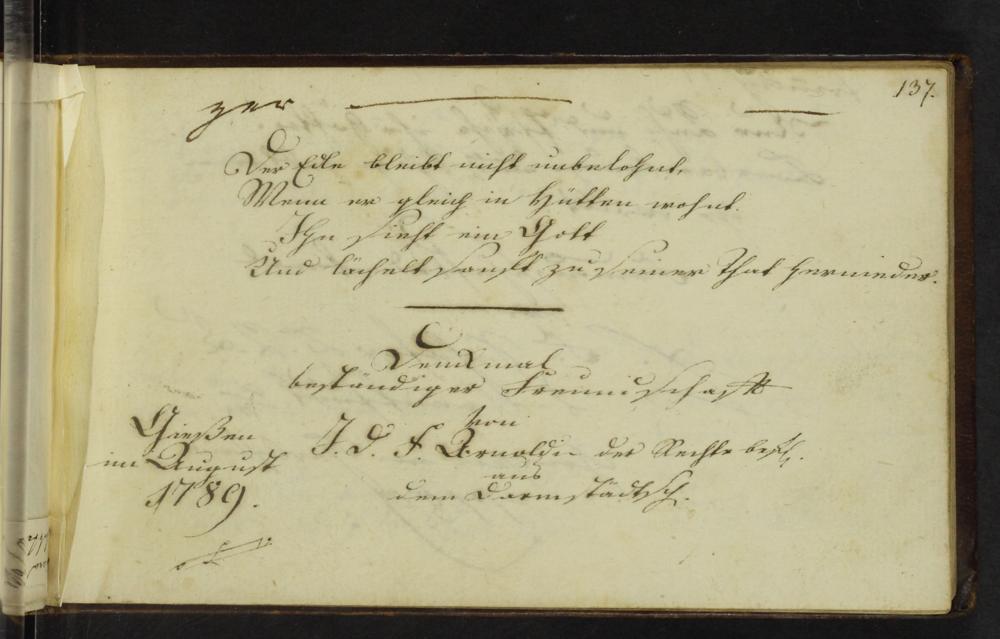 137.
zer
Der Edle bleibt nicht unbelohnt,
Wenn er gleich in Hütten wohnt.
Ihn sieht ein Gott
Und lächelt sanft zu seiner That hernieder.
Denkmal
beständiger Freundschafft
von
J. D. F. Arnoldi der Rechte befl.
aus
dem Darmstädtsch.
Gießen
im August
1789.